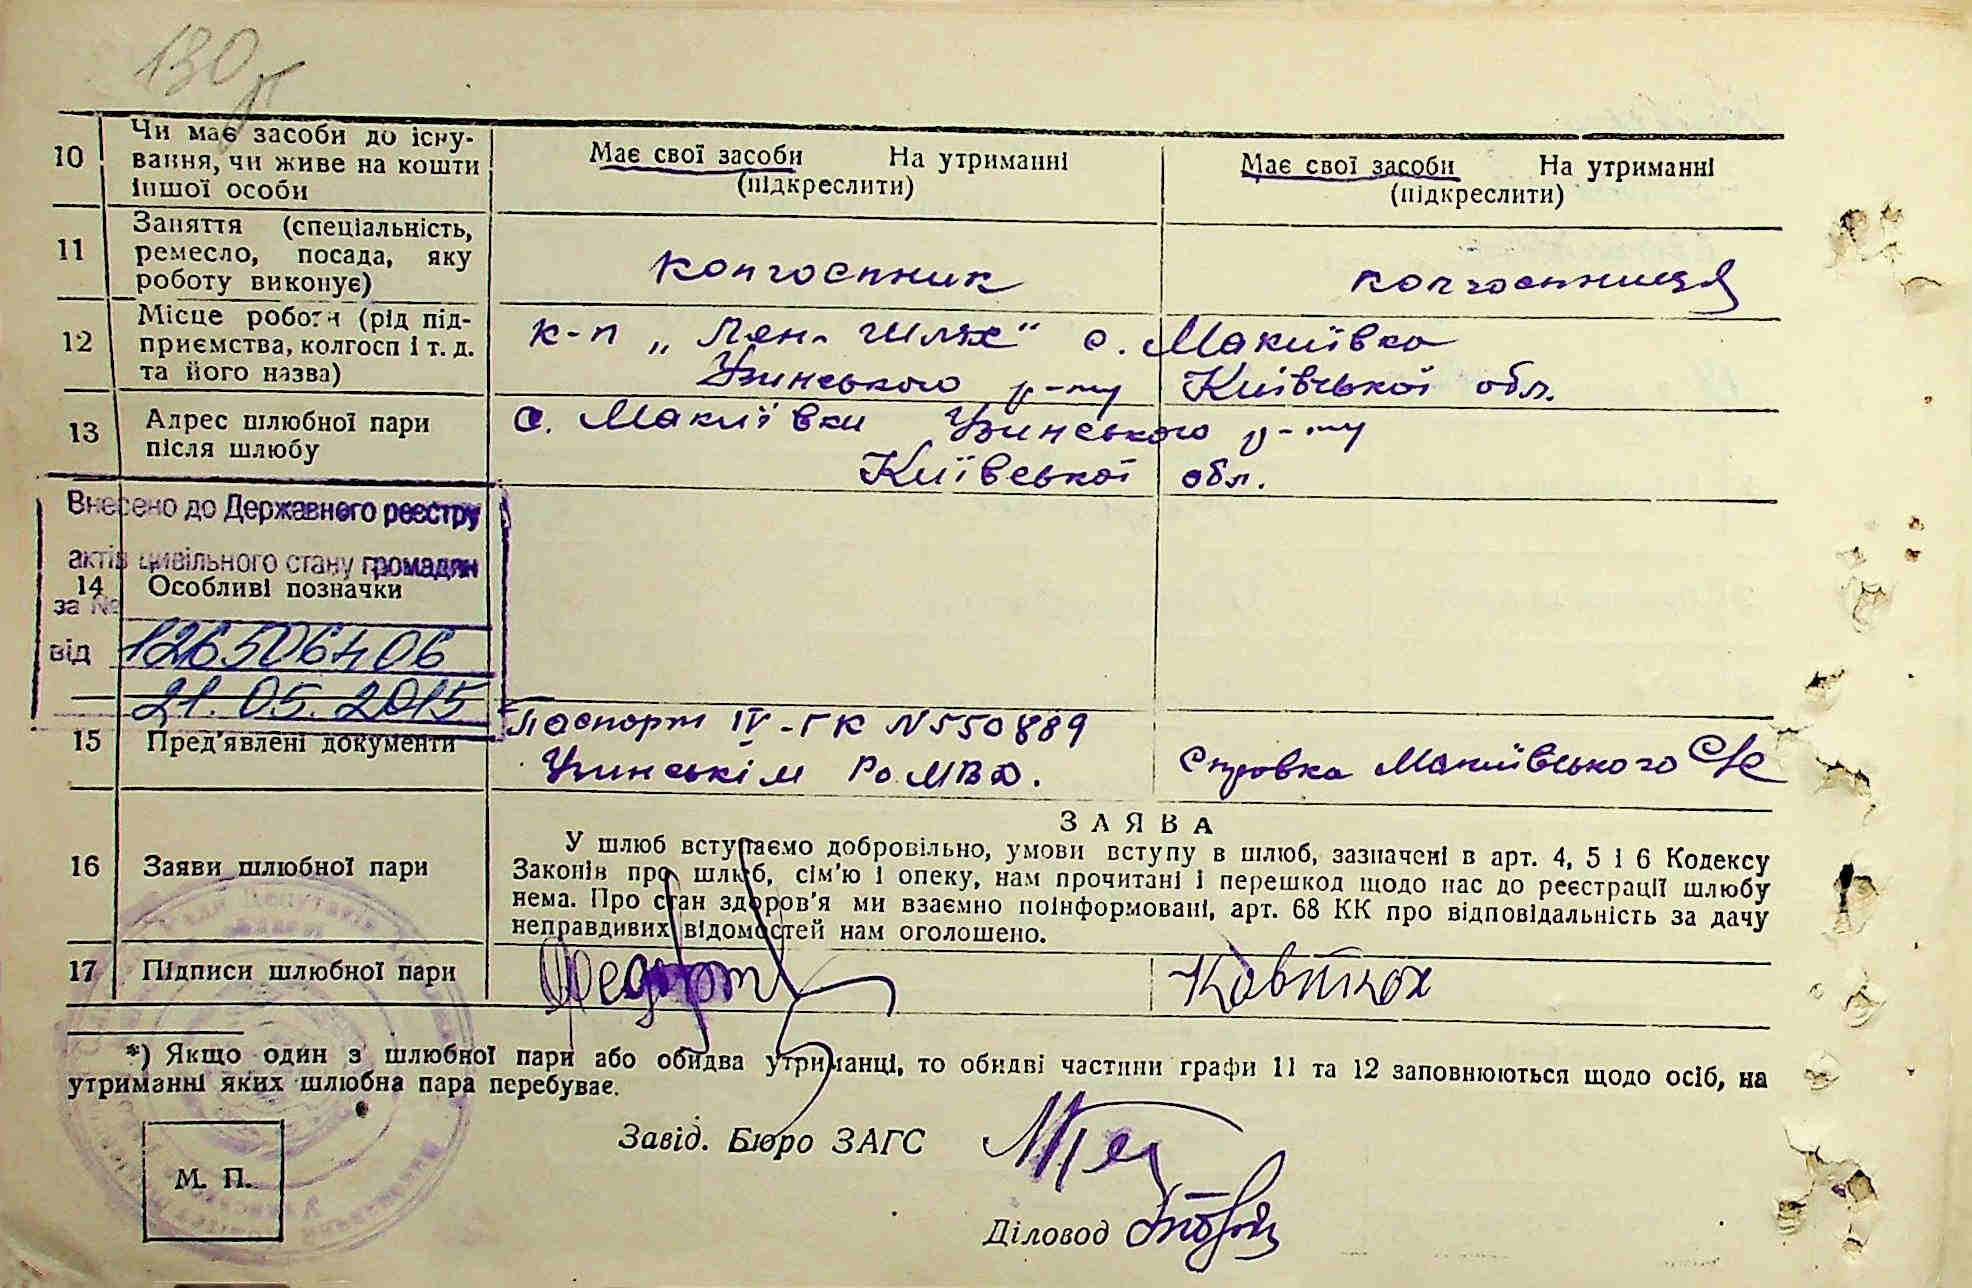 130
10 Чи має засоби до існу-
вання, чи живе на кошти
іншої особи
Має свої засоби На утриманні
(підкреслити)
Має свої засоби На утриманні
(підкреслити)
11 Заняття (спеціальність,
ремесло, посада, яку
роботу виконує)
колгоспник
колгоспниця
12 Місце роботи (рід під-
приємства, колгосп і т. д.
та його назва)
к-п „Лен. шлях" с. Макіївка
Узинського р-ну Київської обл.
13 Адрес шлюбної пари
після шлюбу
с. Макіївки Узинського р-ну
Київської обл.
Внесено до Державного реєстру
актів цивільного стану громадян
14 Особливі позначки
за №
від 126506406
21.05.2015
15 Пред'явлені документи
Паспорт IV-ГК N 550889
Узинськім Ро МВД.
Справка Макіївського С/Р
16 Заяви шлюбної пари
ЗАЯВА
У шлюб вступаємо добровільно, умови вступу в шлюб, зазначені в арт. 4, 5 і 6 Кодексу
Законів про шлюб, сім'ю і опеку, нам прочитані і перешкод щодо нас до реєстрації шлюбу
нема. Про стан здоров'я ми взаємно поінформовані, арт. 68 КК про відповідальність за дачу
неправдивих відомостей нам оголошено.
17 Підписи шлюбної пари
Ковтнюх
*) Якщо один з шлюбної пари або обидва утриманці, то обидві частини графи 11 та 12 заповнюються щодо осіб, на
утриманні яких шлюбна пара перебуває.
Завід. Бюро ЗАГС
М. П.
Діловод